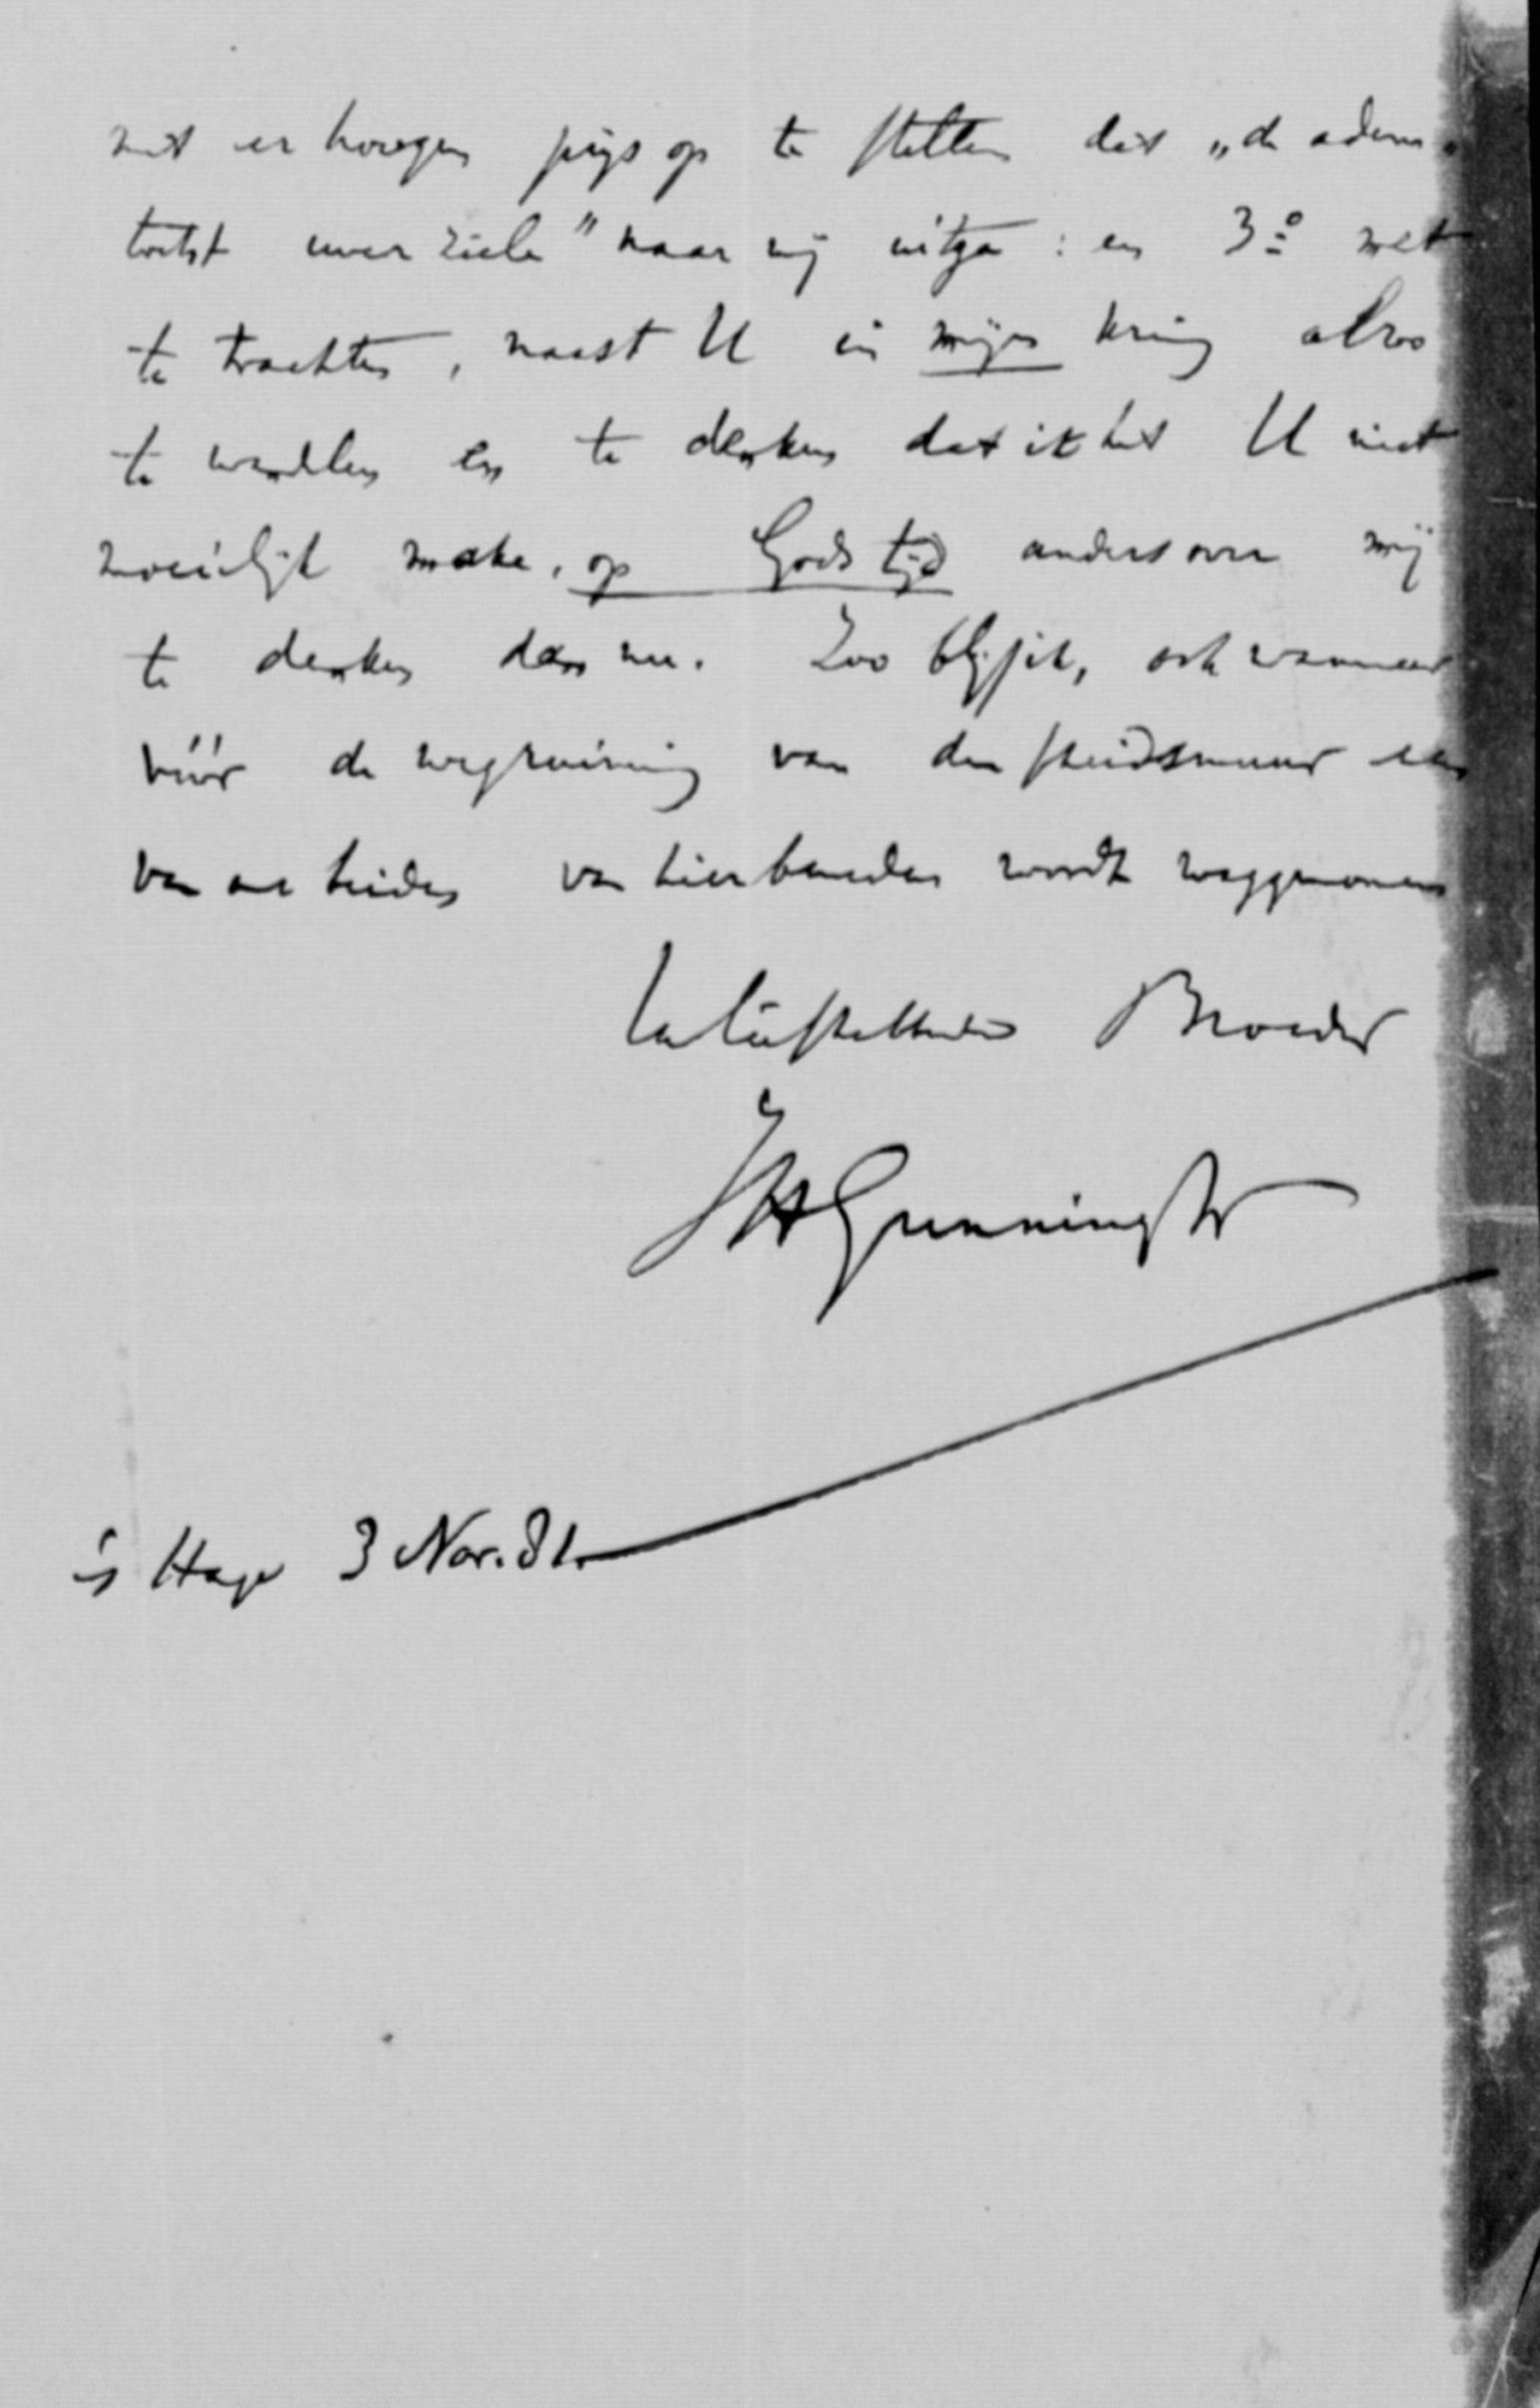 met er hoogen prijs op te stellen dat „de adem-
tocht uwer ziele" naar mij uitga: en 3º met
te trachten, naast U in mijn kring alzoo
te wandlen en te denken dat ik het U niet
moeielijk make, op Gods tijd anders over mij
te denken dan nu. Zoo blijf ik, ook wanneer
vóór de wegruiming van den scheidsmuur een
van ons beiden van hier beneden wordt weggenomen
Uw liefhebbende Broeder
JHGunning Jr
's Hage 3 Nov. 81.